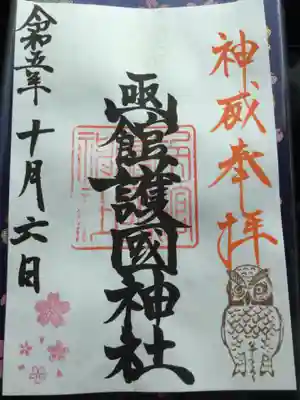 神威奉拝
函館護國神社
令和五年
十月六日